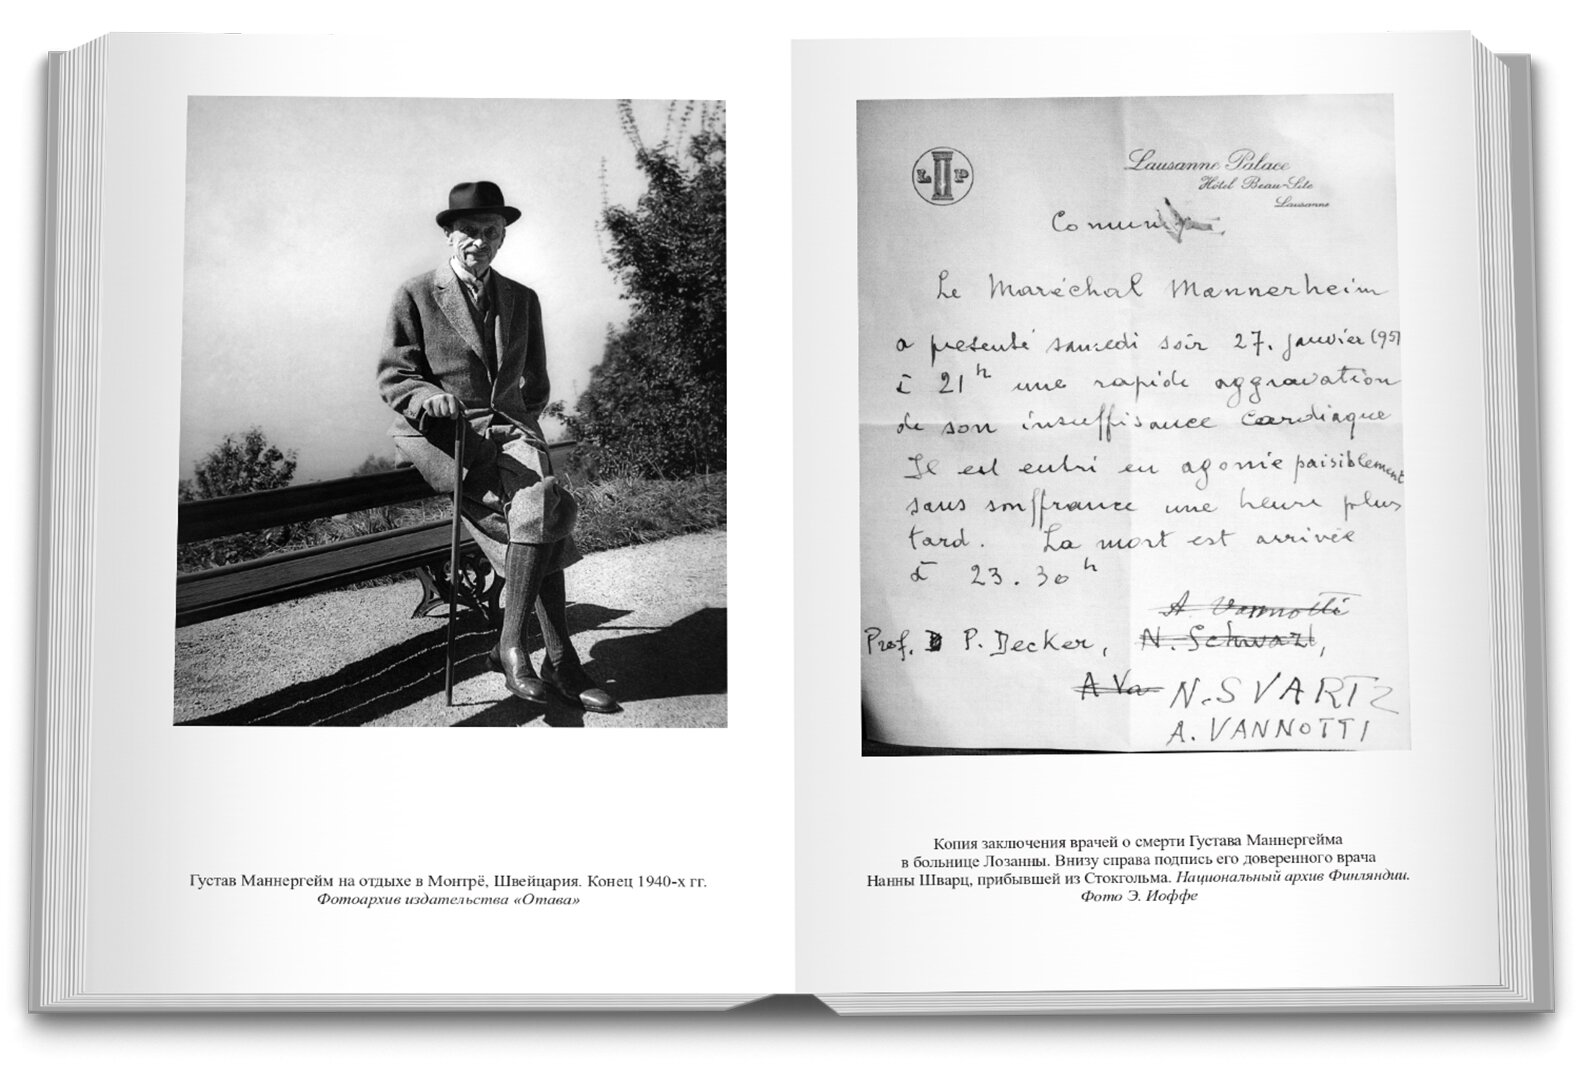 Густав Маннергейм на отдыхе в Монтрё, Швейцария. Конец 1940-х гг.
Фотоархив издательства «Отава»
L P
Lausanne Palace
Hôtel Beau-Site
Lausanne
Le Maréchal Mannerheim
a présenté samedi soir 27. janvier 1951
à 21h une rapide aggravation
de son insuffisance cardiaque
Il est entré en agonie paisiblement
sans souffrance une heure plus
tard. La mort est arrivée
à 23.30h
A Vannotti
Prof. P. Decker, N. Schwarz,
A Va N. SVARTZ
A. VANNOTTI
Копия заключения врачей о смерти Густава Маннергейма
в больнице Лозанны. Внизу справа подпись его доверенного врача
Нанны Шварц, прибывшей из Стокгольма. Национальный архив Финляндии.
Фото Э. Иоффе